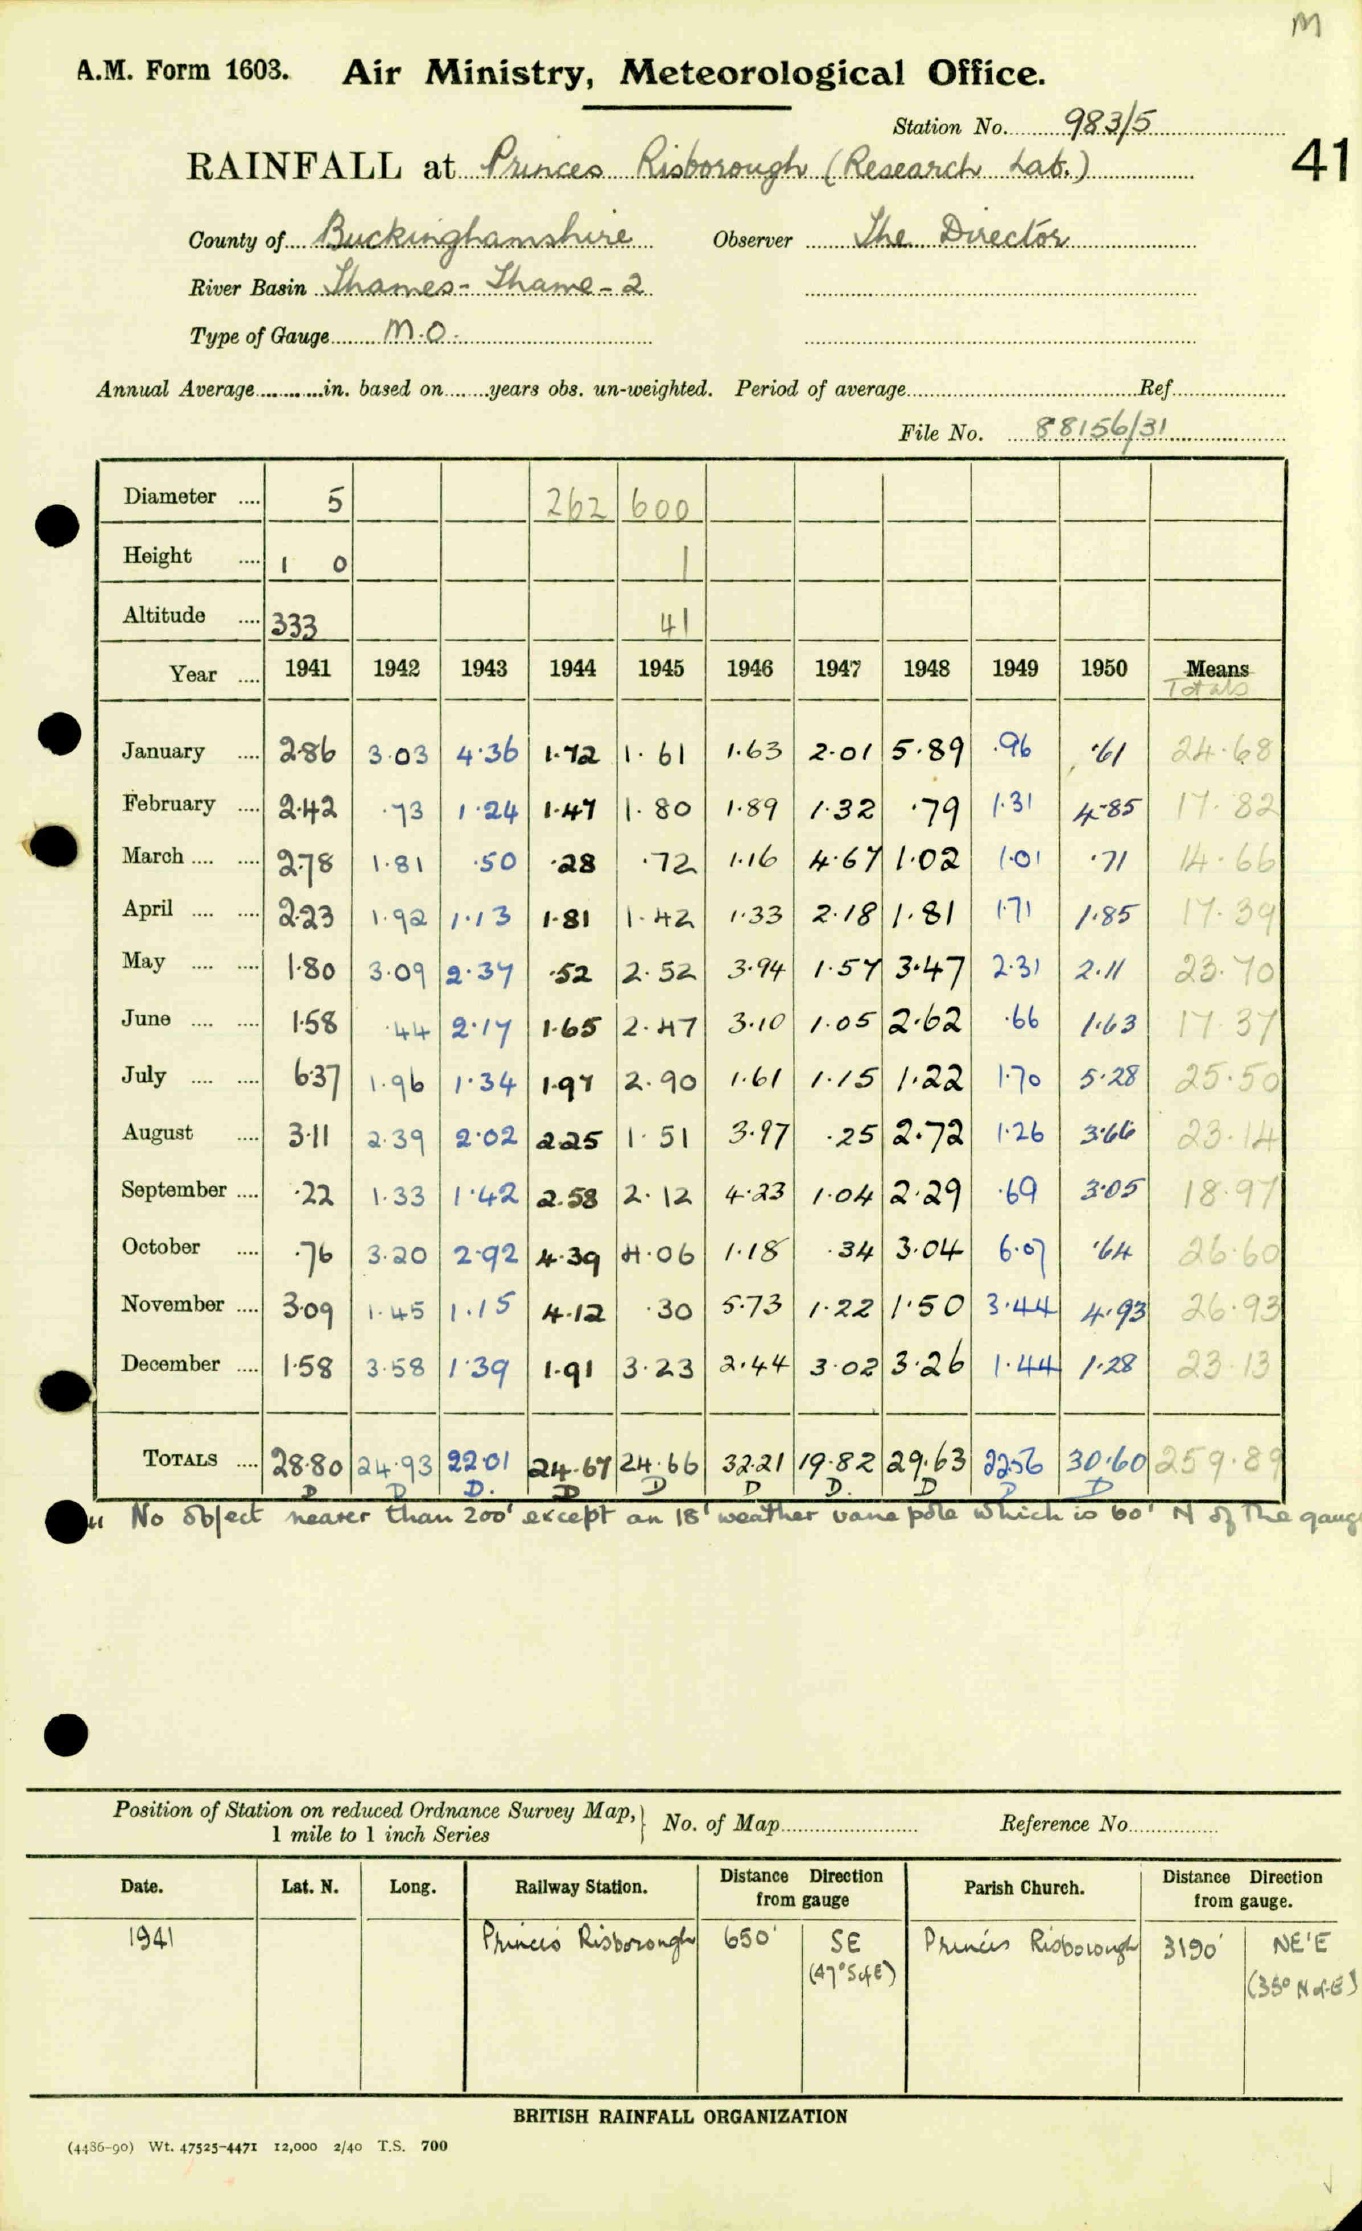 M
A.M. Form 1603. Air Ministry, Meteorological Office.
Station No. 983/5
41
RAINFALL at Princes Risborough (Research Lab.)
County of Buckinghamshire Observer The Director
River Basin Thames - Thame - 2
Type of Gauge M.O.
Annual Average in. based on years obs. un-weighted. Period of average Ref
File No. 88156/31
Diameter 5 262 600
Height 1 0 1
Altitude 333 41
Year 1941 1942 1943 1944 1945 1946 1947 1948 1949 1950 Means
Totals
January 2.86 3.03 4.36 1.72 1.61 1.63 2.01 5.89 .96 .61 24.68
February 2.42 .73 1.24 1.47 1.80 1.89 1.32 .79 1.31 4.85 17.82
March 2.78 1.81 .50 .28 .72 1.16 4.67 1.02 1.01 .71 14.66
April 2.23 1.92 1.13 1.81 1.42 1.33 2.18 1.81 1.71 1.85 17.39
May 1.80 3.09 2.37 .52 2.52 3.94 1.57 3.47 2.31 2.11 23.70
June 1.58 .44 2.17 1.65 2.47 3.10 1.05 2.62 .66 1.63 17.37
July 6.37 1.96 1.34 1.97 2.90 1.61 1.15 1.22 1.70 5.28 25.50
August 3.11 2.39 2.02 2.25 1.51 3.97 .25 2.72 1.26 3.66 23.14
September .22 1.33 1.42 2.58 2.12 4.23 1.04 2.29 .69 3.05 18.97
October .76 3.20 2.92 4.39 4.06 1.18 .34 3.04 6.07 .64 26.60
November 3.09 1.45 1.15 4.12 .30 5.73 1.22 1.50 3.44 4.93 26.93
December 1.58 3.58 1.39 1.91 3.23 2.44 3.02 3.26 1.44 1.28 23.13
TOTALS 28.80 24.93 22.01 24.67 24.66 32.21 19.82 29.63 22.56 30.60 259.89
D D D. D D D D. D D D
No object nearer than 200' except an 18' weather vane pole which is 60' N of the gauge
Position of Station on reduced Ordnance Survey Map, No. of Map Reference No
1 mile to 1 inch Series
Date. Lat. N. Long. Railway Station. Distance Direction from gauge Parish Church. Distance Direction from gauge.
1941 Princes Risborough 650' SE Princes Risborough 3190' NE'E
(47° S of E) (35° N of E)
BRITISH RAINFALL ORGANIZATION
(4486-90) Wt. 47525-4471 12,000 2/40 T.S. 700